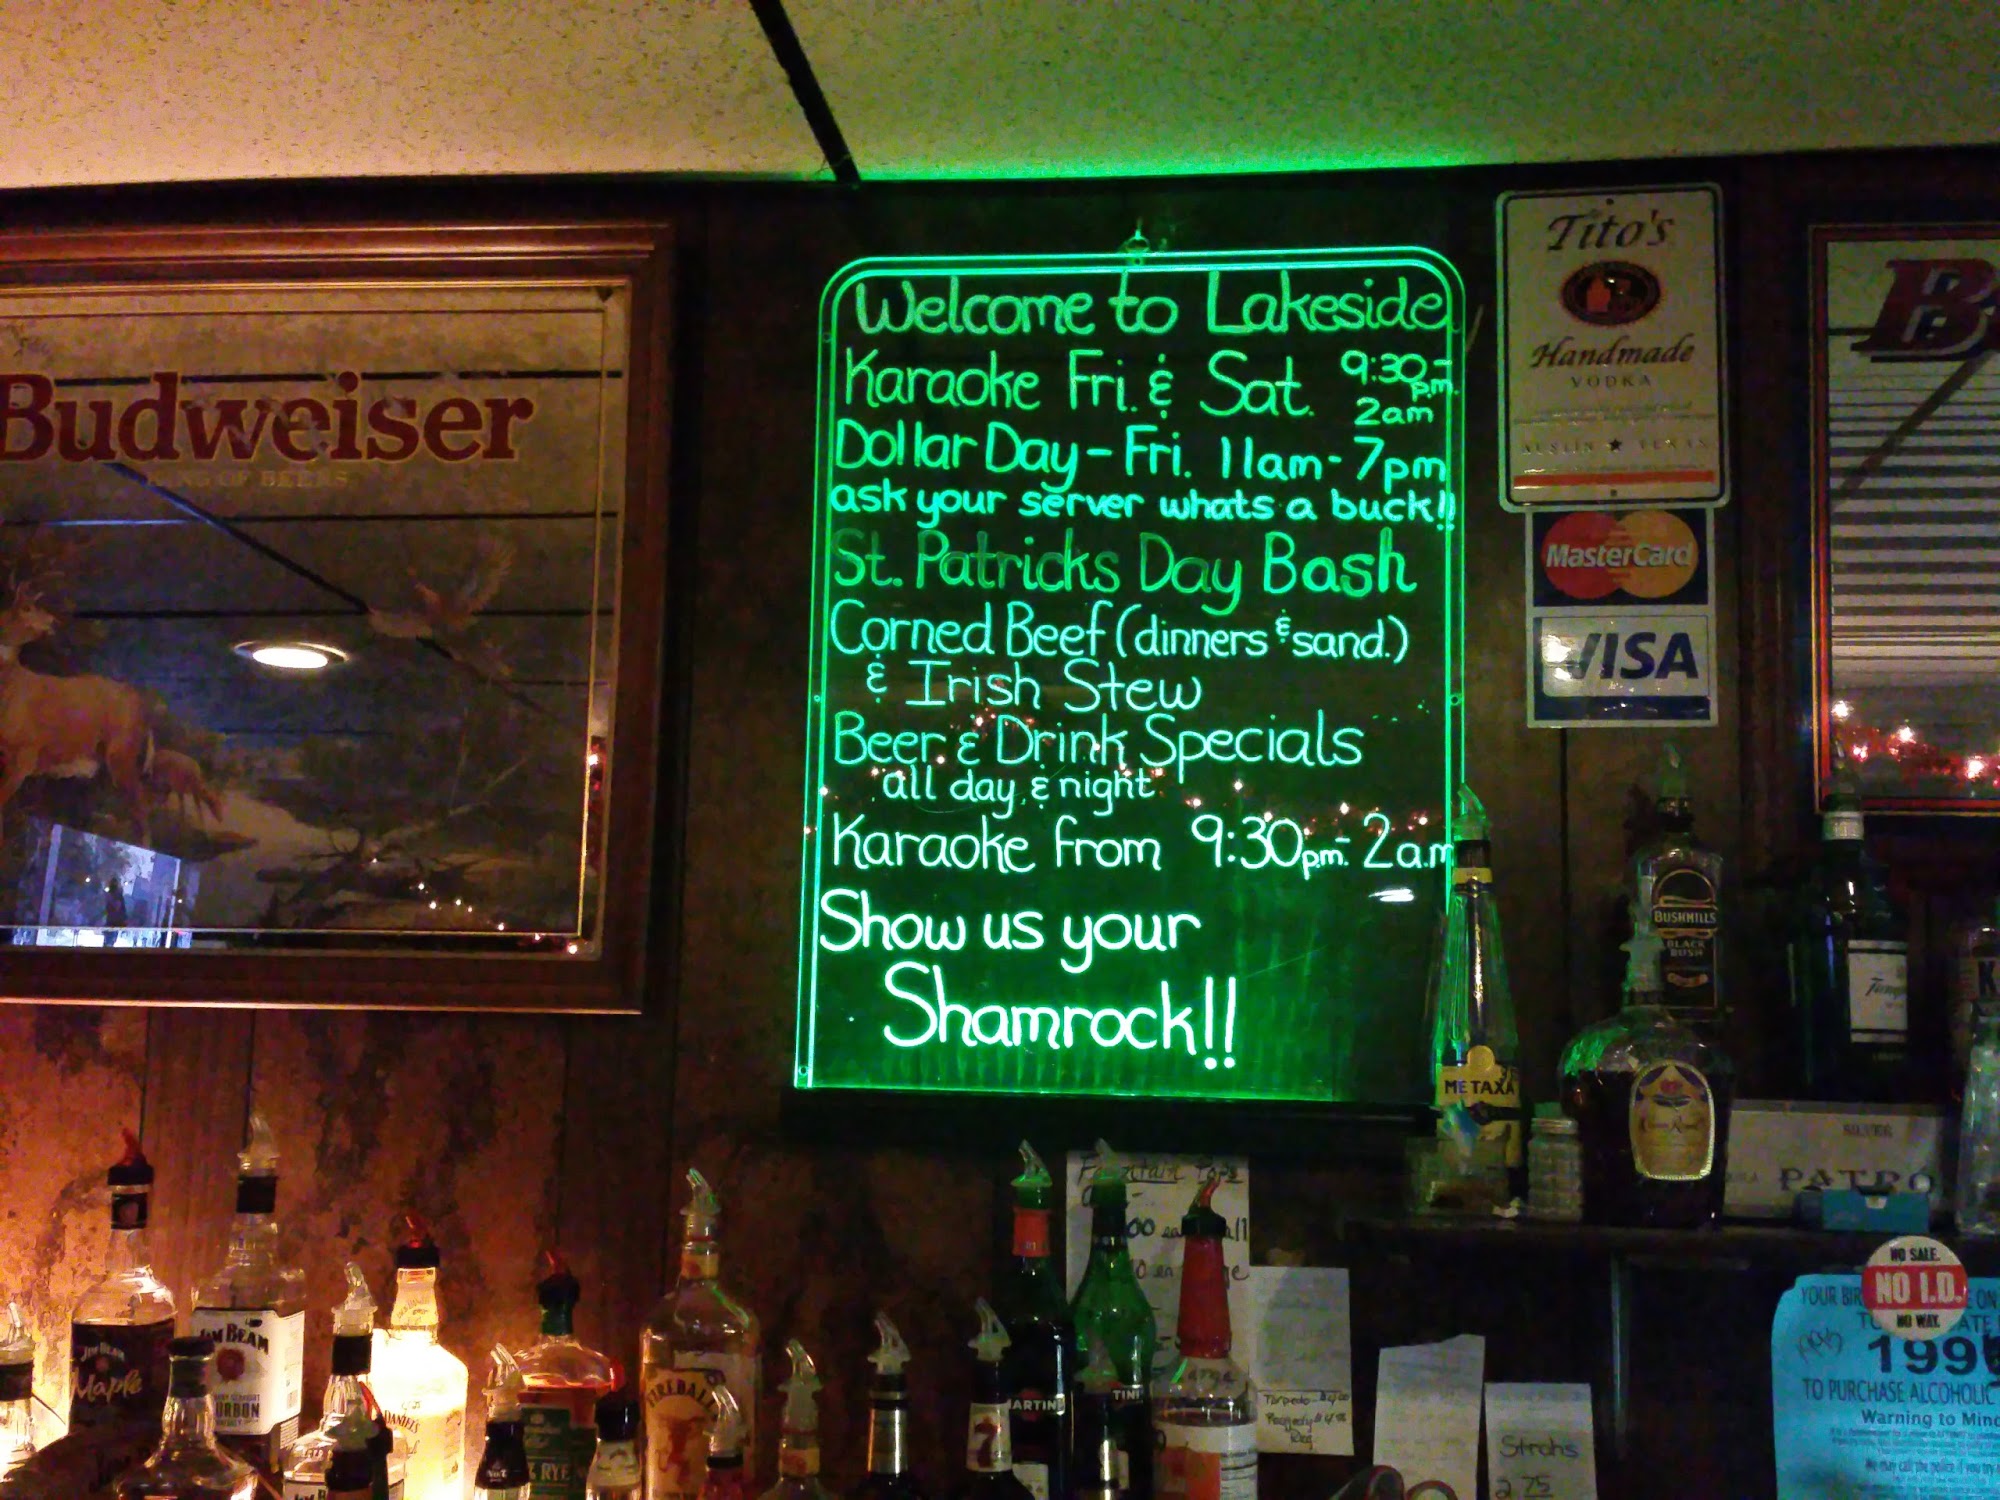 Welcome to Lakeside
Karaoke Fri. & Sat. 9:30 p.m.-
2am
Dollar Day - Fri. 11am - 7pm
ask your server whats a buck!!
St. Patricks Day Bash
Corned Beef (dinners & sand.)
& Irish Stew
Beer & Drink Specials
all day & night
Karaoke from 9:30 p.m. - 2a.m
Show us your
Shamrock!!
Budweiser
KING OF BEERS
Tito's
Handmade
VODKA
AUSTIN ★ TEXAS
MasterCard
VISA
B
BUSHMILLS
BLACK
BUSH
METAXA
Crown Royal
SILVER
PATRO
Fountain Pops
JIM BEAM
Maple
JIM BEAM
FIREBALL
RYE
MARTIN
TINI
7
Torpedo
Strohs
2.75
NO SALE.
NO I.D.
NO WAY.
YOUR BIR
ON
199
TO PURCHASE ALCOHOLIC
Warning to Mino